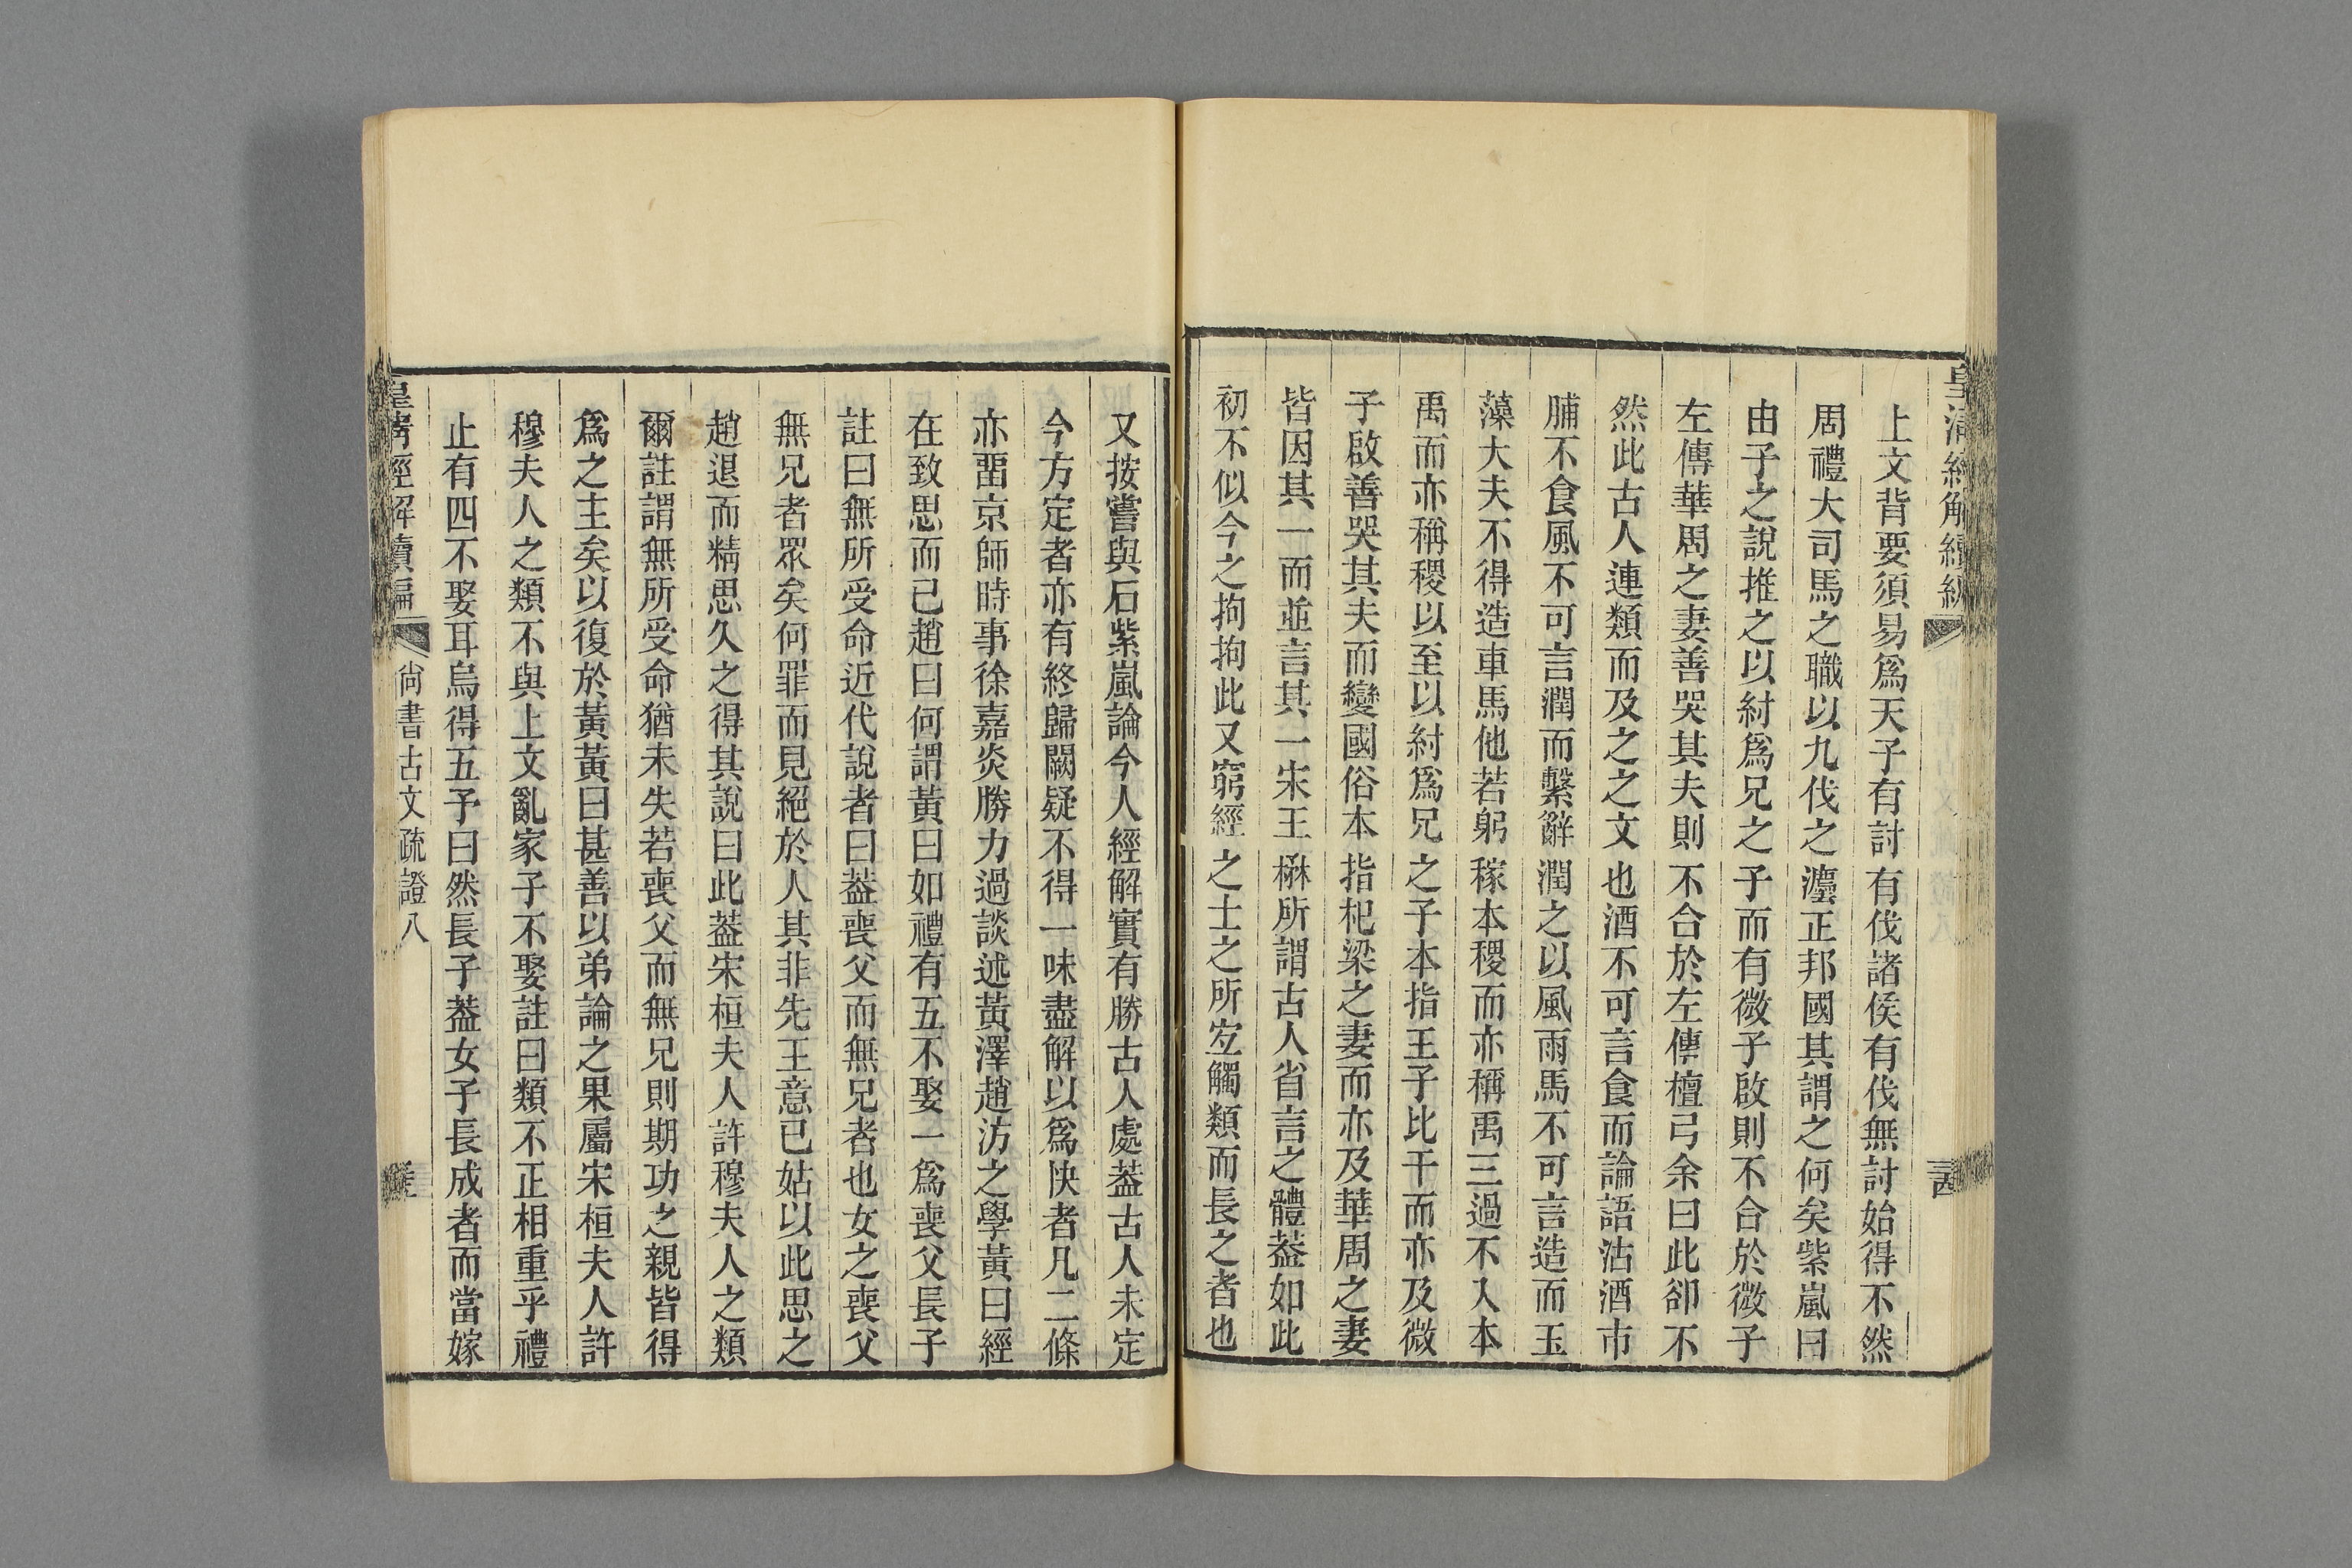 皇清經解續編
上文背要須易爲天子有討有伐諸侯有伐無討始得不然
周禮大司馬之職以九伐之灋正邦國其謂之何矣紫嵐曰
由子之說推之以紂爲兄之子而有微子啟則不合於微子
左傳華周之妻善哭其夫則不合於左傳檀弓余曰此卻不
然此古人連類而及之之文也酒不可言食而論語沽酒市
脯不食風不可言潤而繫辭潤之以風雨馬不可言造而玉
藻大夫不得造車馬他若躬稼本稷而亦稱禹三過不入本
禹而亦稱稷以至以紂爲兄之子本指王子比干而亦及微
子啟善哭其夫而變國俗本指杞梁之妻而亦及華周之妻
皆因其一而並言其一宋王楙所謂古人省言之體葢如此
初不似今之拘拘此又窮經之士之所宐觸類而長之者也
又按嘗與石紫嵐論今人經解實有勝古人處葢古人未定
今方定者亦有終歸闕疑不得一味盡解以爲快者凡二條
亦畱京師時事徐嘉炎勝力過談述黃澤趙汸之學黃曰經
在致思而已趙曰何謂黃曰如禮有五不娶一爲喪父長子
註曰無所受命近代說者曰葢喪父而無兄者也女之喪父
無兄者眾矣何罪而見絕於人其非先王意已姑以此思之
趙退而精思久之得其說曰此葢宋桓夫人許穆夫人之類
爾註謂無所受命猶未失若喪父而無兄則期功之親皆得
爲之主矣以復於黃黃曰甚善以弟論之果屬宋桓夫人許
穆夫人之類不與上文亂家子不娶註曰類不正相重乎禮
止有四不娶耳烏得五予曰然長子葢女子長成者而當嫁
皇清經解續編 尙書古文疏證八